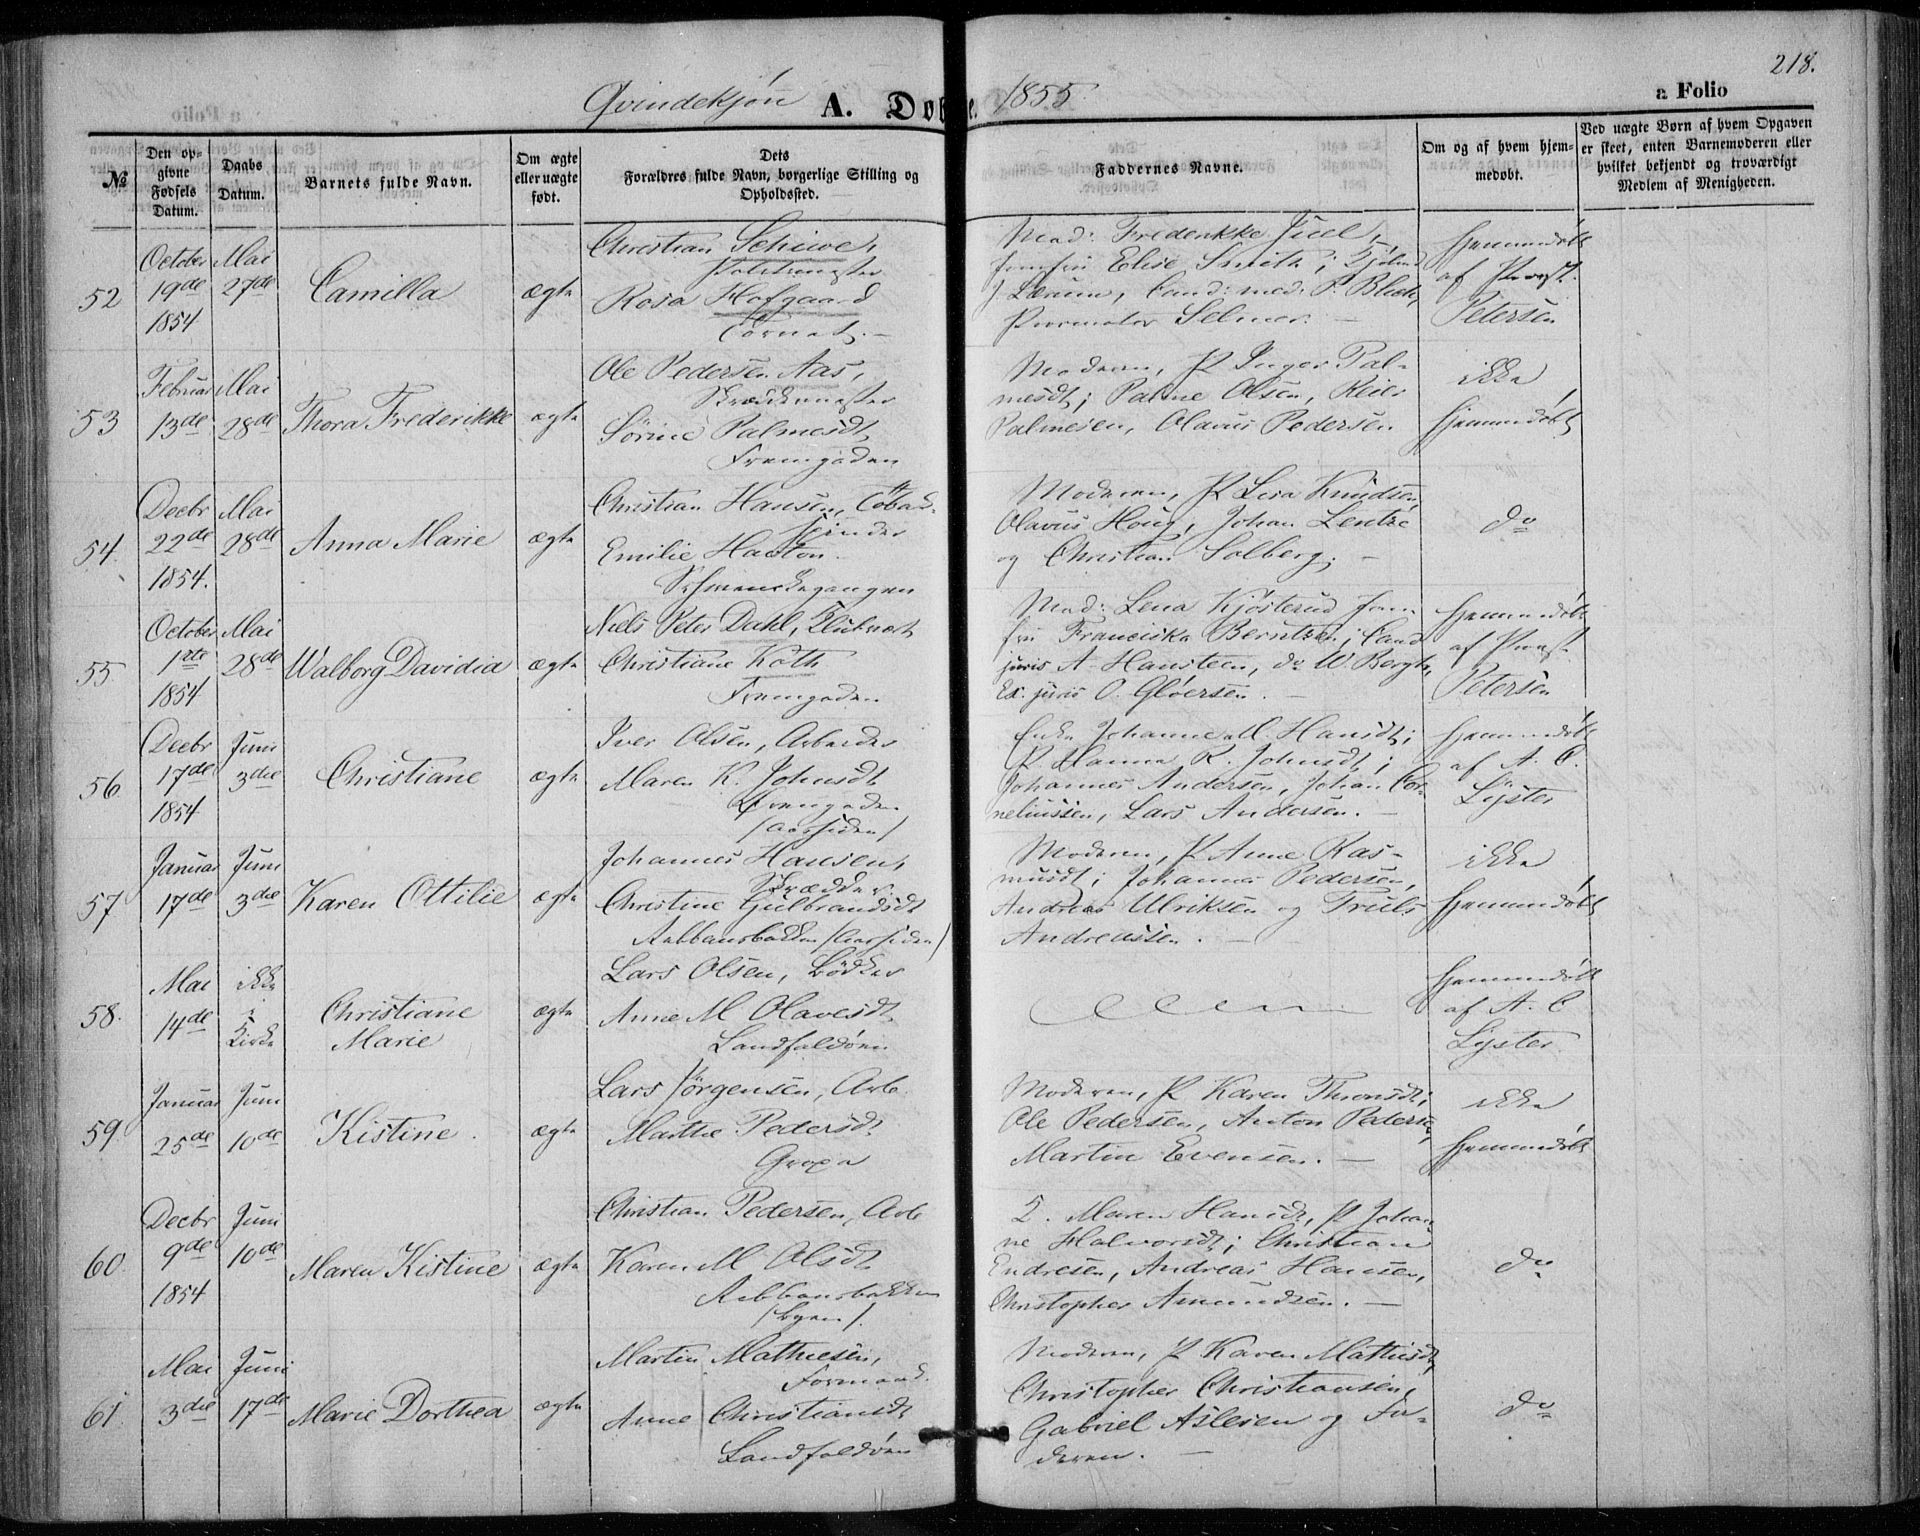 218.
Qvindekjøn A. Døbte. 1855. a Folio
№
Den op-
givne
Fødsels
Datum.
Daabs
Datum.
Barnets fulde Navn.
Om ægte
eller uægte
født.
Dets
Forældres fulde Navn, borgerlige Stilling og
Opholdssted.
Faddernes Navne.
Om og af hvem hjem-
medøbt.
Ved uægte Børn af hvem Opgaven
er skeet, enten Barnemoderen eller
hvilket bekjendt og troværdigt
Medlem af Menigheden.
52
October
19de
1854
Mai
27de
Camilla
ægte
Christian Schiwe,
Politimester
Rosa Hofgaard
Tornet. –
Mad: Frederikke Juel,
Jomfru Elise Smith;
J. Lærum, Cand: med: P. Blich,
Procurator Selmer. –
hjemmedøbt
af Provst
Petersen
53
Februar
13de
Mai
28de
Thora Frederikke
ægte
Ole Pedersen Aas,
Skræddermester
Sørine Palmesdt
Tremgaden
Moderen, P Inger Pal-
mesdt; Palme Olsen, Reier
Palmesen, Olavus Pedersen
ikke
hjemmedøbt
54.
Decbr
22de
1854.
Mai
28de
Anna Marie
ægte
Christian Hansen, Tobak-
spinder
Emilie Haston
Schwenckegangen
Moderen, P Lisa Knudsen,
Olavus Houg, Johan Lentze
og Christian Solberg. –
do
55.
October
1ste
1854
Mai
28de
Walborg Davidia
ægte
Niels Peter Dahl, Klubvært
Christiane Koth
Tremgaden
Mad: Lena Kjøsterud Jom-
fru Franciska Berntzen; Cand
juris A. Hansteen, do W Bergh,
Ex. juris O. Gløersen. –
hjemmedøbt
af Provst
Petersen
56.
Decbr
17de
1854
Juni
3die
Christiane
ægte
Iver Olsen, Arbeider
Maren K. Johnsdt
Tremgaden
/Aassiden/
Enke Johanne M. Hansdt;
P. Hanna R. Johnsdt;
Johannes Andersen, Johan Cor-
neliussen, Lars Andersen. –
hjemmedøbt
af A. C.
Lyster
57
Januar
17de
Juni
3die
Karen Ottilie
ægte
Johannes Hansen,
Skrædder
Christine Gulbrandsdt
Aabbansbakken /Aassiden/
Moderen, P Anne Ras-
musdt; Johannes Pedersen,
Andreas Ulriksen og Truls
Andreassen. –
ikke
hjemmedøbt
58.
Mai
14de
ikke
i
Kirke
Christiane
Marie
ægte
Lars Olsen, Bødker
Anne M Olavesdt
Landfaldøen
hjemmedøbt
af A. C
Lyster
59.
Januar
25de
Juni
10de
Kistine.
ægte
Lars Jørgensen, Arb.
Marthe Pedersdt
Gropa
Moderen, P Karen Thronsdt;
Ole Pedersen, Anton Pedersen,
Martin Evensen. –
ikke
hjemmedøbt
60.
Decbr
9de
1854
Juni
10de
Maren Kistine
ægte
Christian Pedersen, Arb
Karen M Olsdt
Aabbansbakken
/Byen/.
2. Maren Hansdt, P Johan-
ne Halvorsdt; Christian
Endresen, Andreas Hansen,
Christopher Amundsen. –
do
61.
Mai
3die
Juni
17de
Marie Dorthea
ægte
Martin Mathiesen,
Formand.
Anne Christiansdt
Landfaldøen
Moderen, P Karen Mathisdt,
Christopher Christiansen,
Gabriel Aslesen og Fa-
deren. –
do